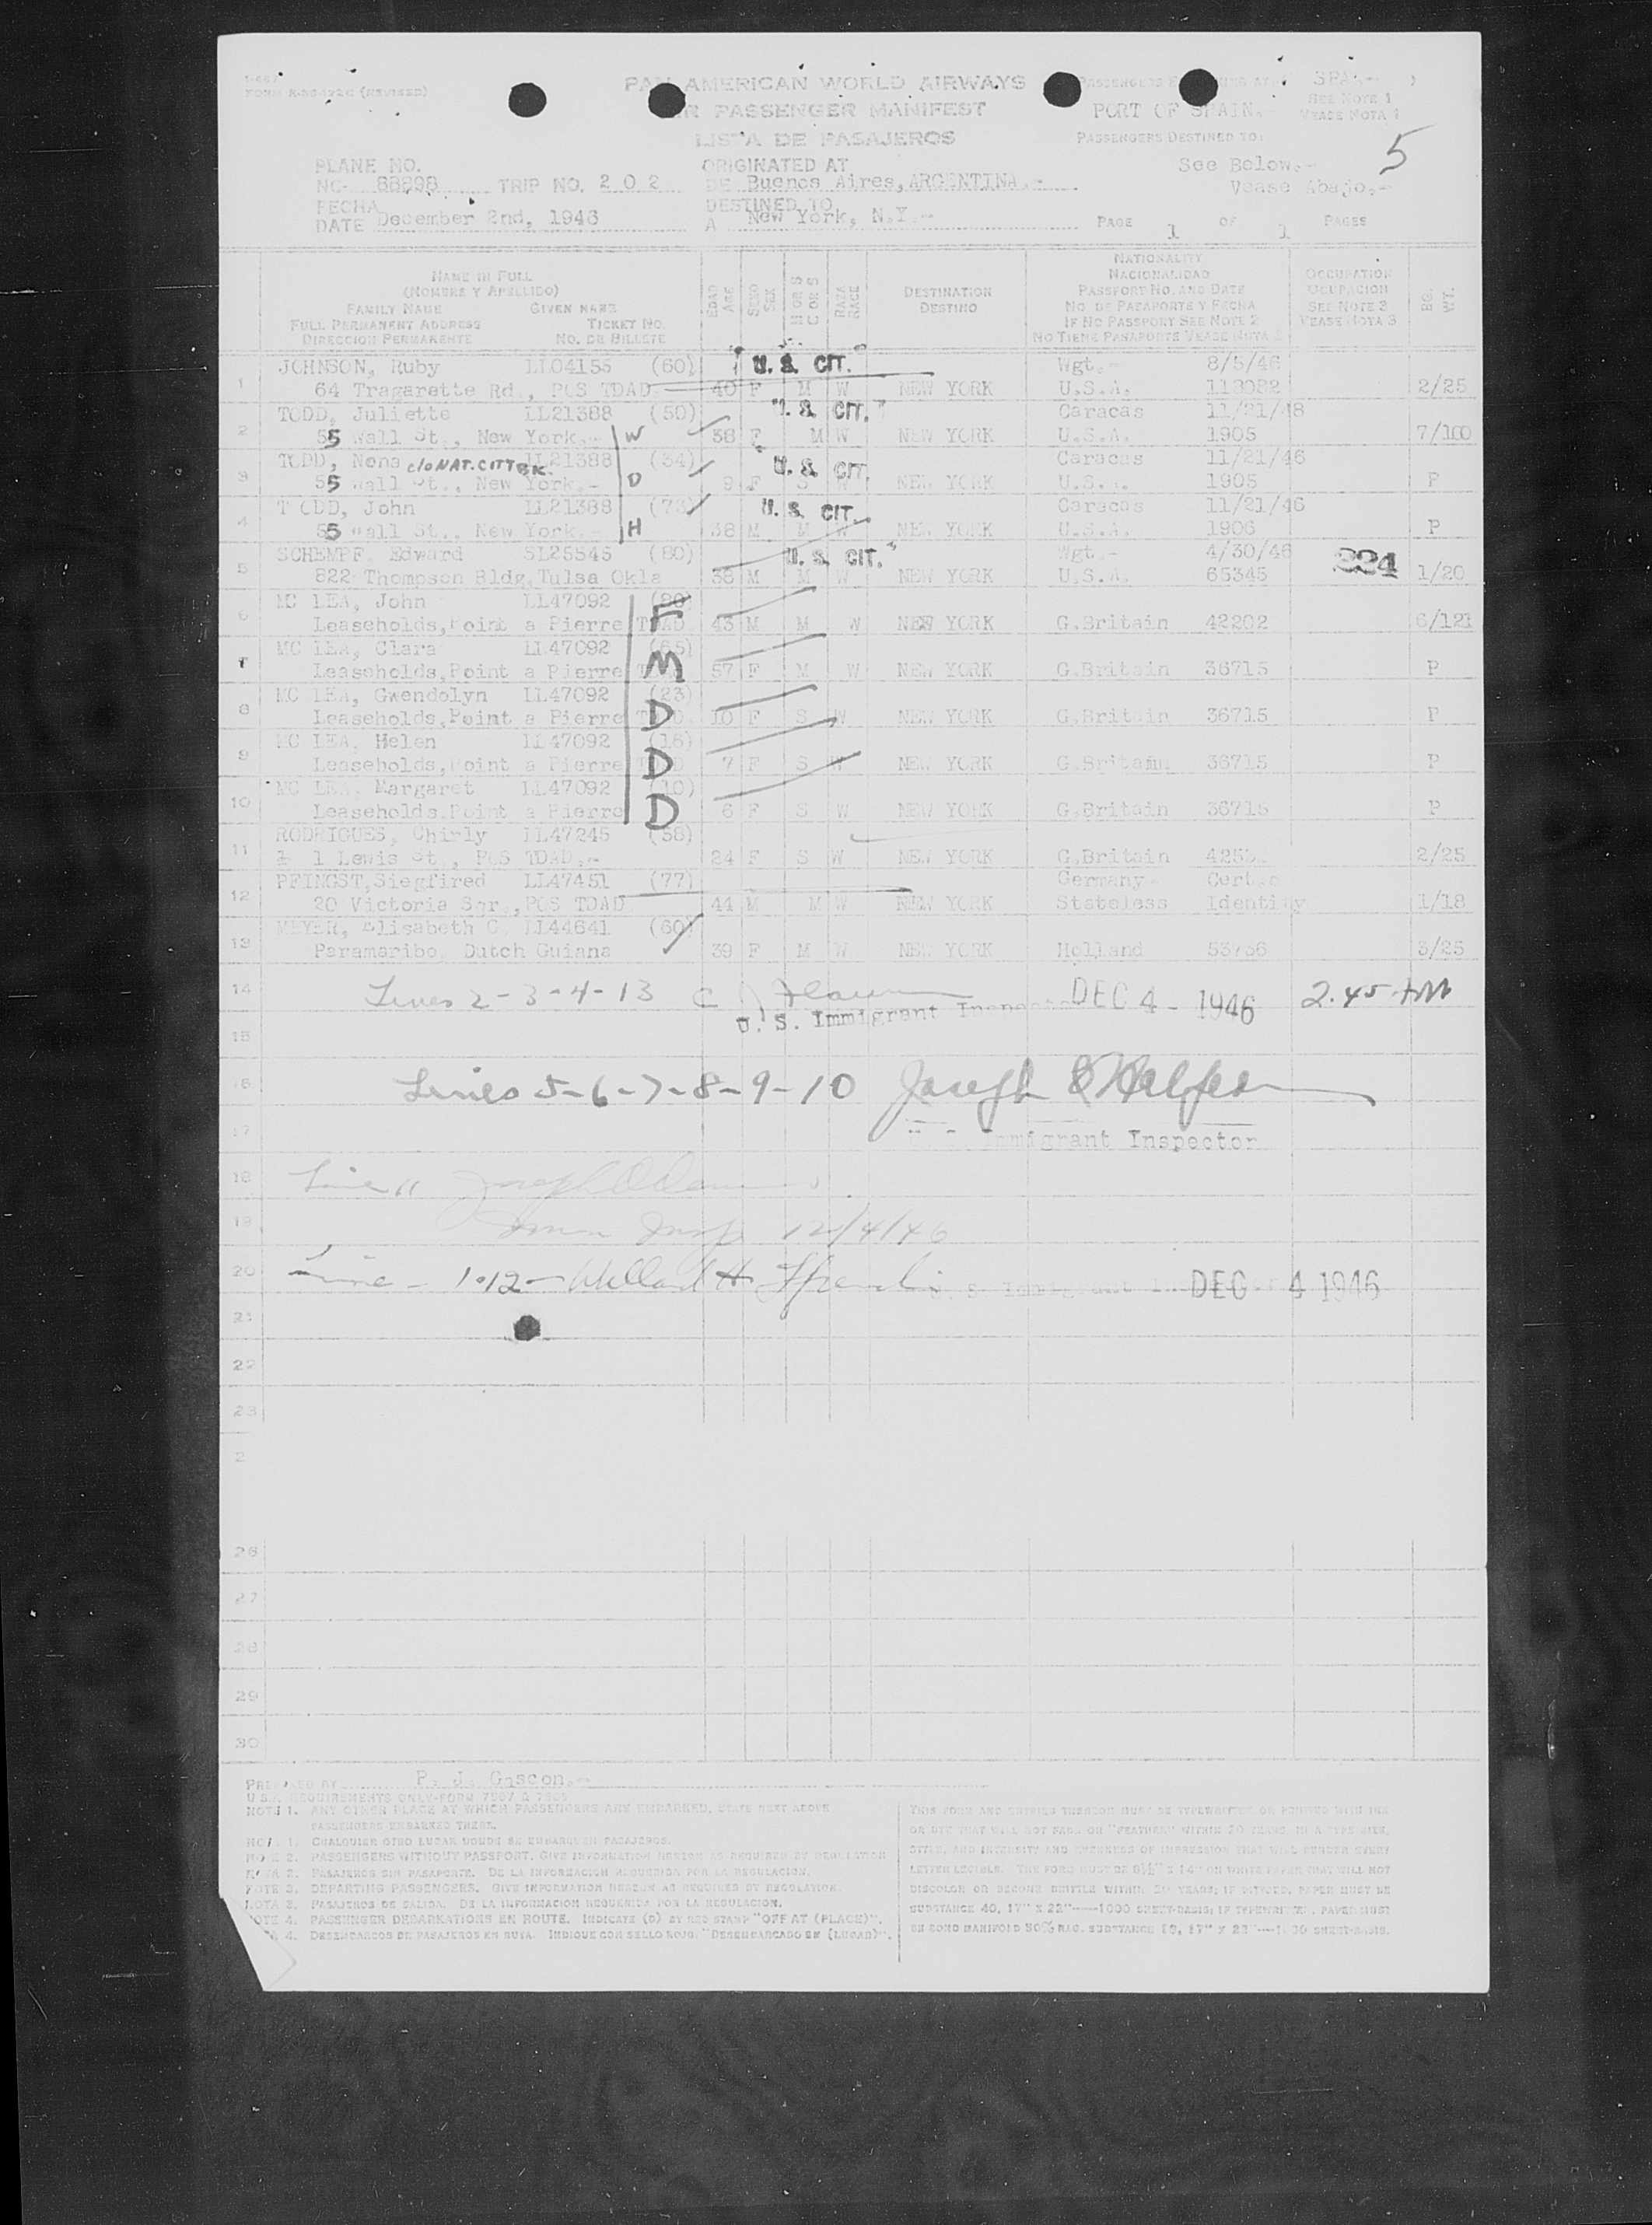 FORM (REVISED)
PAN AMERICAN WORLD AIRWAYS
PASSENGER MANIFEST
LISTA DE PASAJEROS
PORT OF SPAIN.
SEE NOTE 1
VEASE NOTA 1
PASSENGERS DESTINED TO:
See Below.-
Vease Abajo.-
5
PLANE NO.
NC- 88898 TRIP NO. 2 0 2
ORIGINATED AT
DE Buenos Aires, ARGENTINA.-
FECHA
DATE December 2nd, 1946
DESTINED TO
A New York, N.Y.-
PAGE 1 OF 1 PAGES
NAME IN FULL
(NOMBRE Y APELLIDO)
FAMILY NAME GIVEN NAME
FULL PERMANENT ADDRESS TICKET NO.
DIRECCION PERMANENTE NO. DE BILLETE
EDAD AGE
SEXO SEX
M OR S
C OR S
RAZA RACE
DESTINATION
DESTINO
NATIONALITY
NACIONALIDAD
PASSPORT NO. AND DATE
NO. DE PASAPORTE Y FECHA
IF NO PASSPORT SEE NOTE 2
NO TIENE PASAPORTE VEASE NOTA 2
OCCUPATION
OCUPACION
SEE NOTE 3
VEASE NOTA 3
BG. WT.
JOHNSON, Ruby LL04155 (60) U. S. CIT. Wgt.- 8/5/46
1 64 Tragarette Rd., POS TDAD 40 F M W NEW YORK U.S.A. 113082 2/25
TODD, Juliette LL21388 (50) U. S. CIT. Caracas 11/21/48
2 55 Wall St., New York.- W 38 F M W NEW YORK U.S.A. 1905 7/100
TODD, Nona c/o NAT. CITY BK. LL21388 (34) U. S. CIT. Caracas 11/21/46
3 55 Wall St., New York.- D 9 F S W NEW YORK U.S.A. 1905 P
TODD, John LL21388 (73) U. S. CIT. Caracas 11/21/46
4 55 Wall St., New York.- H 38 M M W NEW YORK U.S.A. 1906 P
SCHEMPF, Edward SL25545 (80) U. S. CIT. Wgt.- 4/30/46
5 822 Thompson Bldg, Tulsa Okla 38 M M W NEW YORK U.S.A. 65345 224 1/20
MC LEA, John LL47092
6 Leaseholds, Point a Pierre F 43 M M W NEW YORK G.Britain 42202 6/121
MC LEA, Clara LL47092 (65)
7 Leaseholds, Point a Pierre M 57 F M W NEW YORK G.Britain 36715 P
MC LEA, Gwendolyn LL47092 (23)
8 Leaseholds, Point a Pierre D 10 F S W NEW YORK G.Britain 36715 P
MC LEA, Helen LL47092 (16)
9 Leaseholds, Point a Pierre D 7 F S W NEW YORK G.Britain 36715 P
MC LEA, Margaret LL47092 (10)
10 Leaseholds, Point a Pierre D 6 F S W NEW YORK G.Britain 36715 P
RODRIGUES, Chirly LL47245 (58)
11 1 Lewis St., POS TDAD.- 24 F S W NEW YORK G.Britain 2/25
PFINGST, Siegfired LL47451 (77) Germany-
12 20 Victoria Sqr., POS TDAD 44 M M W NEW YORK Stateless Identity 1/18
MEYER, Elisabeth C. LL44641 (60)
13 Paramaribo, Dutch Guiana 39 F M W NEW YORK Holland 53736 3/25
14 Lines 2-3-4-13 DEC 4 - 1946 2.45 AM
U. S. Immigrant Inspector
15
16 Lines 5-6-7-8-9-10 Joseph
17 Immigrant Inspector
18 Line 11 Joseph
19 Imm Insp 12/4/46
20 Line - 1.12 - Willard H. DEC 4 1946
21
22
23
2
26
27
28
29
30
PREPARED BY P. J. Gascon.-
NOTE 1. ANY OTHER PLACE AT WHICH PASSENGERS ARE EMBARKED, STATE NEXT ABOVE
PASSENGERS EMBARKED THERE.
NOTA 1. CUALQUIER OTRO LUGAR DONDE SE EMBARQUEN PASAJEROS.
NOTE 2. PASSENGERS WITHOUT PASSPORT. GIVE INFORMATION HEREIN AS REQUIRED BY REGULATION
NOTA 2. PASAJEROS SIN PASAPORTE. DE LA INFORMACION REQUERIDA POR LA REGULACION.
NOTE 3. DEPARTING PASSENGERS. GIVE INFORMATION HEREIN AS REQUIRED BY REGULATION.
NOTA 3. PASAJEROS DE SALIDA. DE LA INFORMACION REQUERIDA POR LA REGULACION.
NOTE 4. PASSENGER DEBARKATIONS EN ROUTE. INDICATE (D) BY RED STAMP "OFF AT (PLACE)".
NOTA 4. DESEMBARCOS DE PASAJEROS EN RUTA. INDIQUE CON SELLO ROJO: "DESEMBARCADO EN (LUGAR)".
THIS FORM AND ENTRIES THEREON MUST BE TYPEWRITTEN OR PRINTED WITH INK
OR DYE THAT WILL NOT FADE OR "FEATHER" WITHIN 20 YEARS, IN A TYPE SIZE,
STYLE, AND INTENSITY AND EVENNESS OF IMPRESSION THAT WILL RENDER EVERY
LETTER LEGIBLE. THE FORM MUST BE 8½" X 14" ON WHITE PAPER THAT WILL NOT
DISCOLOR OR BECOME BRITTLE WITHIN 20 YEARS; IF PRINTED, PAPER MUST BE
SUBSTANCE 40, 17" X 22"—1000 SHEET-BASIS; IF TYPEWRITTEN, PAPER MUST
BE BOND MANIFOLD 50% RAG, SUBSTANCE